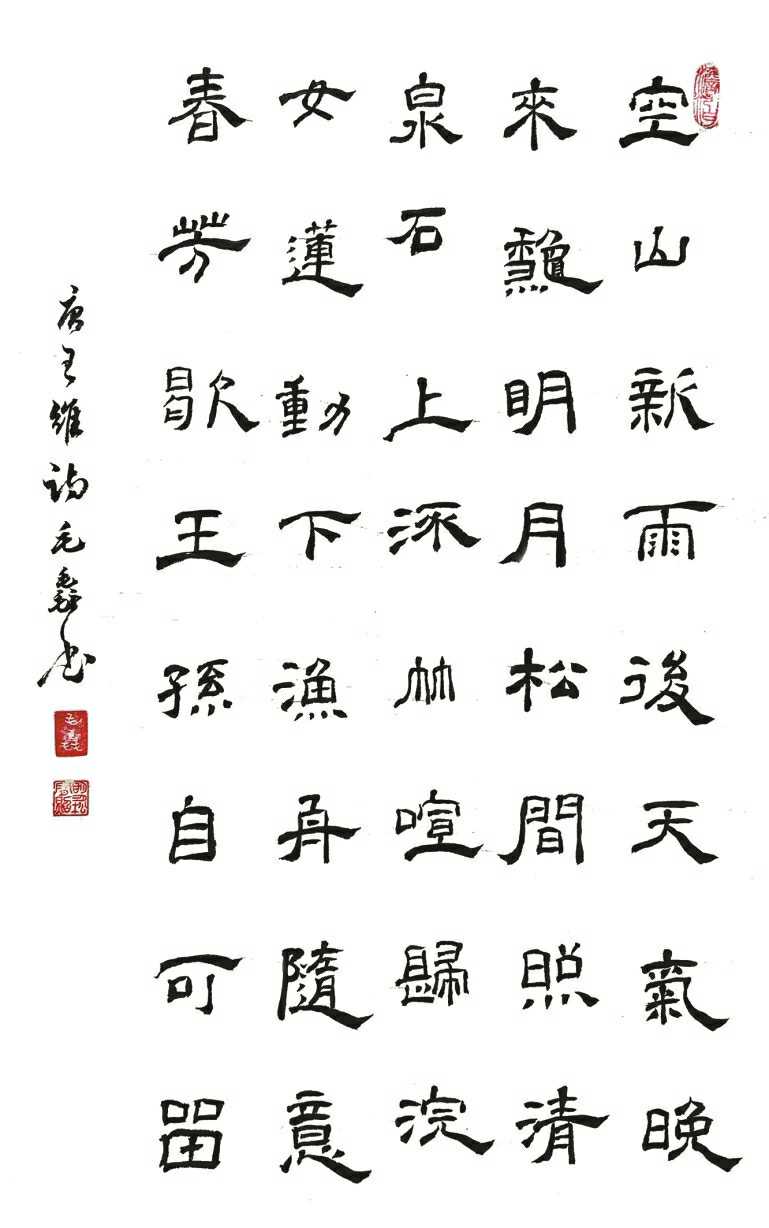 空山新雨後天氣晚
來龝明月松間照清
泉石上流竹喧歸浣
女蓮動下漁舟隨意
春芳歇王孫自可留
唐王維詩毛書